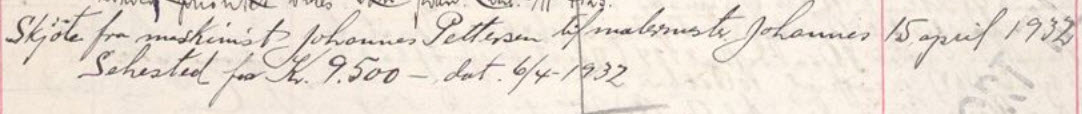 Skjöte fra maskinist Johannes Pettersen til malermester Johannes 15 april 1932
Sehested for Kr. 9.500 – dat. 6/4-1932